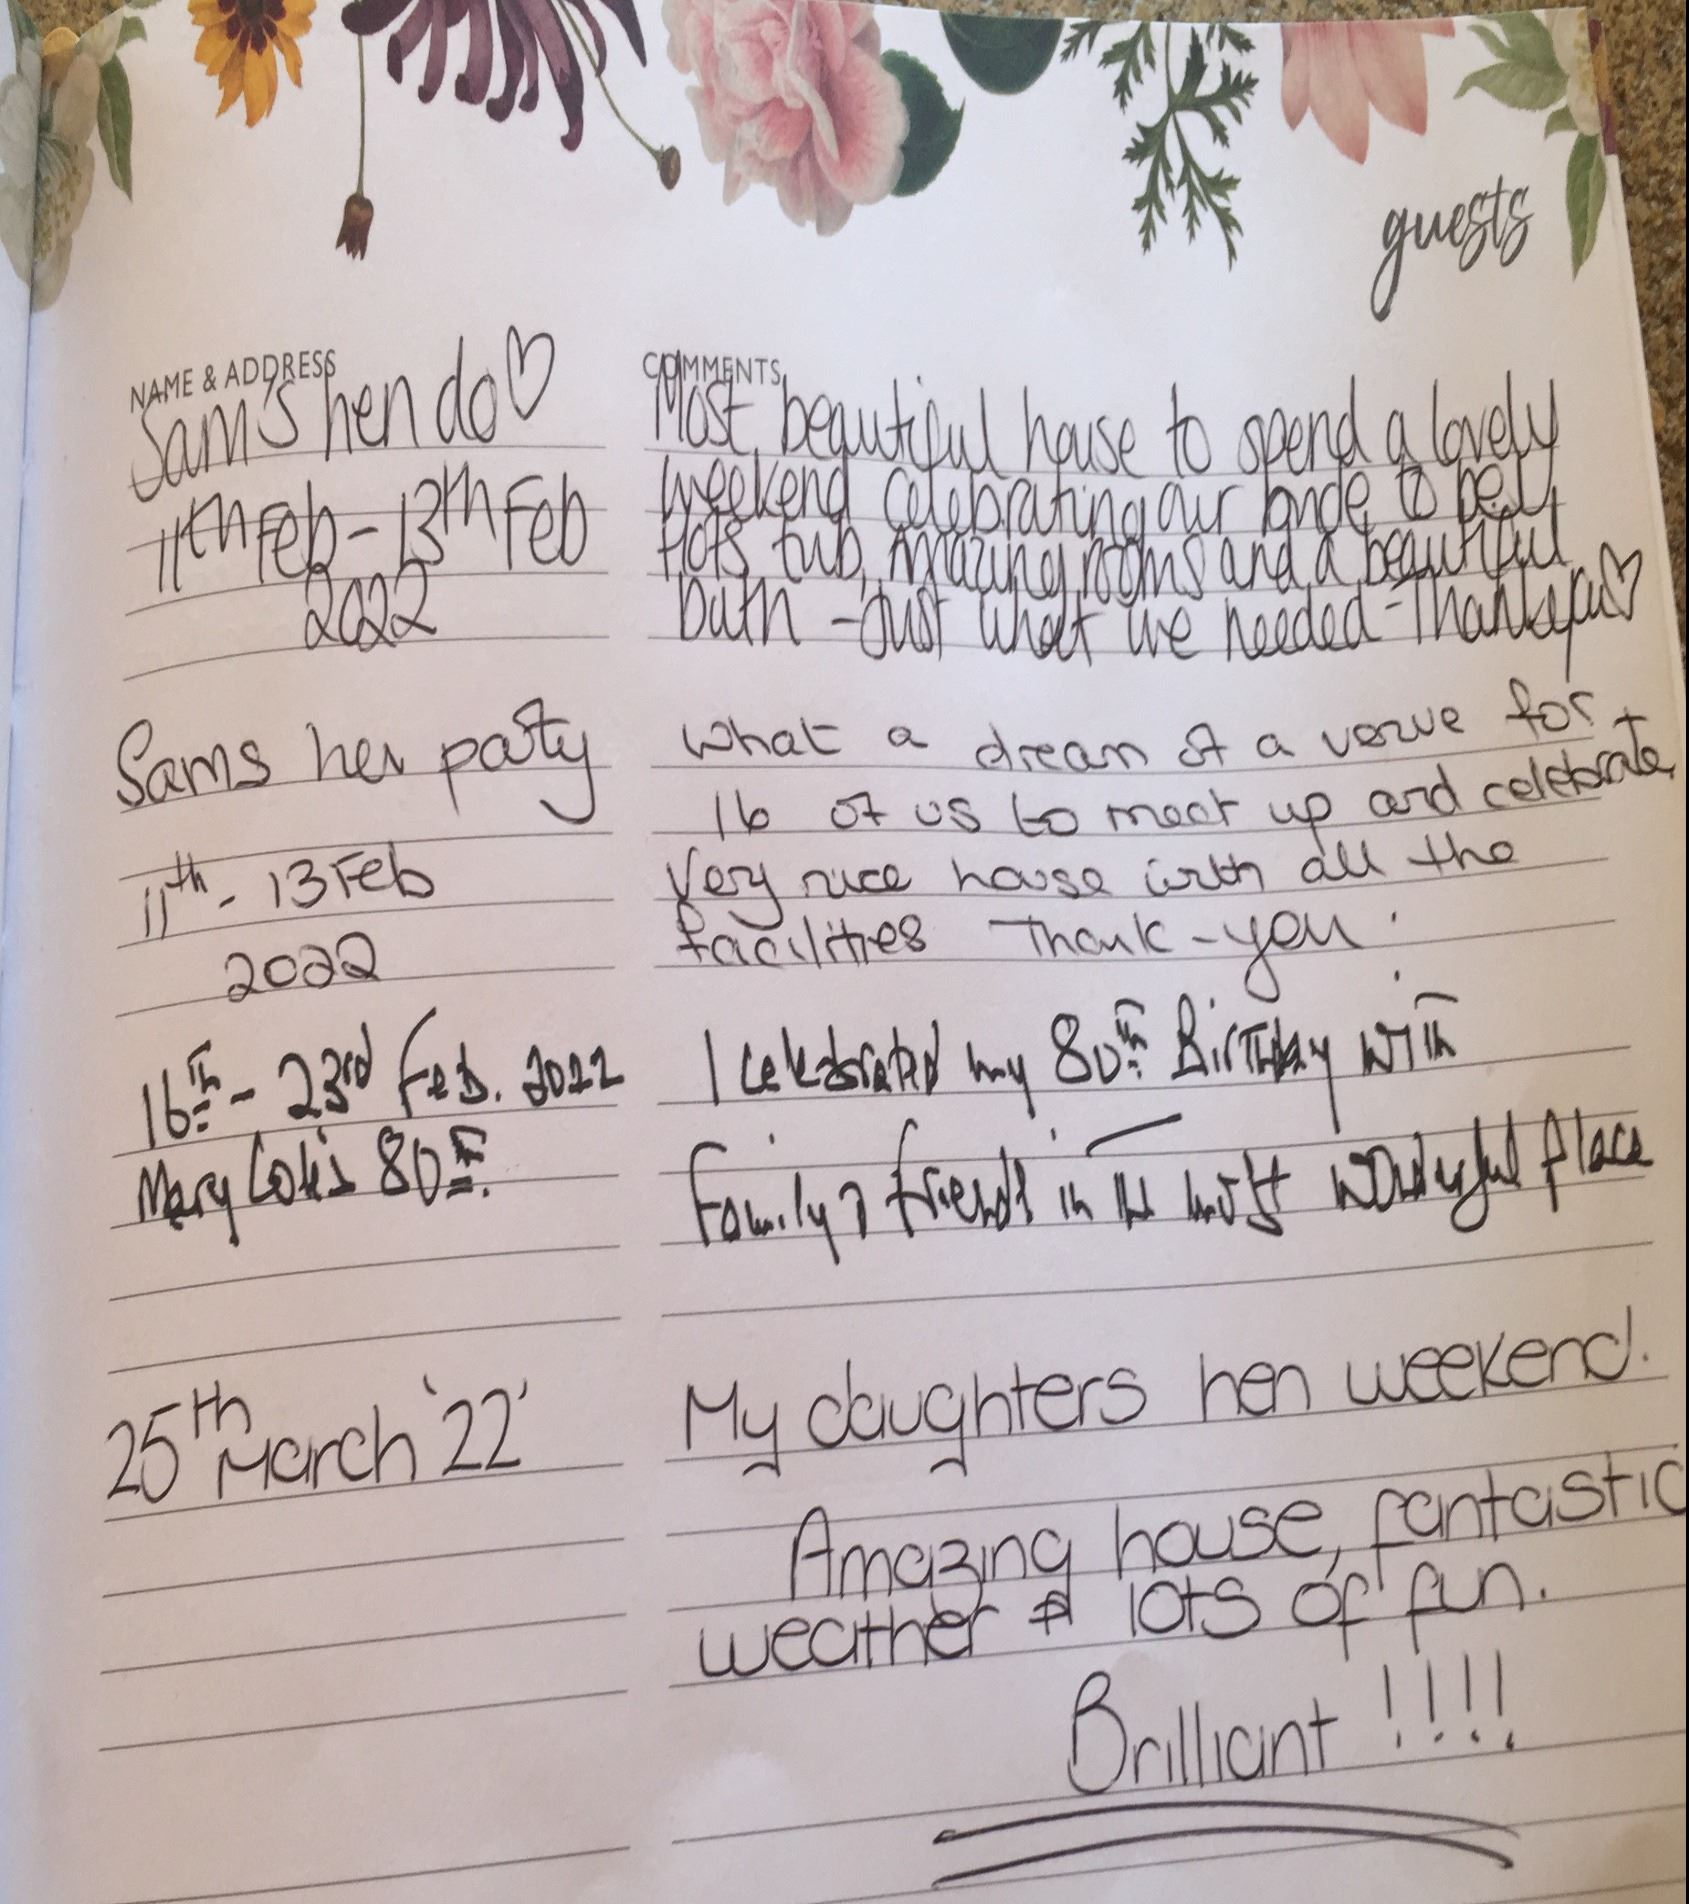 guests
NAME & ADDRESS
Sam's hen do♡
11th Feb - 13th Feb
2022
COMMENTS
Most beautiful house to spend a lovely
weekend celebrating our bride to be!
Hots tub, Amazing rooms and a beautiful
bath - Just what we needed - Thankyou♡
Sams hen party
11th - 13 Feb
2022
What a dream of a venue for
16 of us to meet up and celebrate
Very nice house with all the
facilities Thank-you.
16th - 23rd Feb. 2022
Mary Cole's 80th.
I celebrated my 80th Birthday with
Family & friends in the most wonderful place
25th March '22'
My daughters hen weekend.
Amazing house, fantastic
weather & lots of fun.
Brilliant !!!!